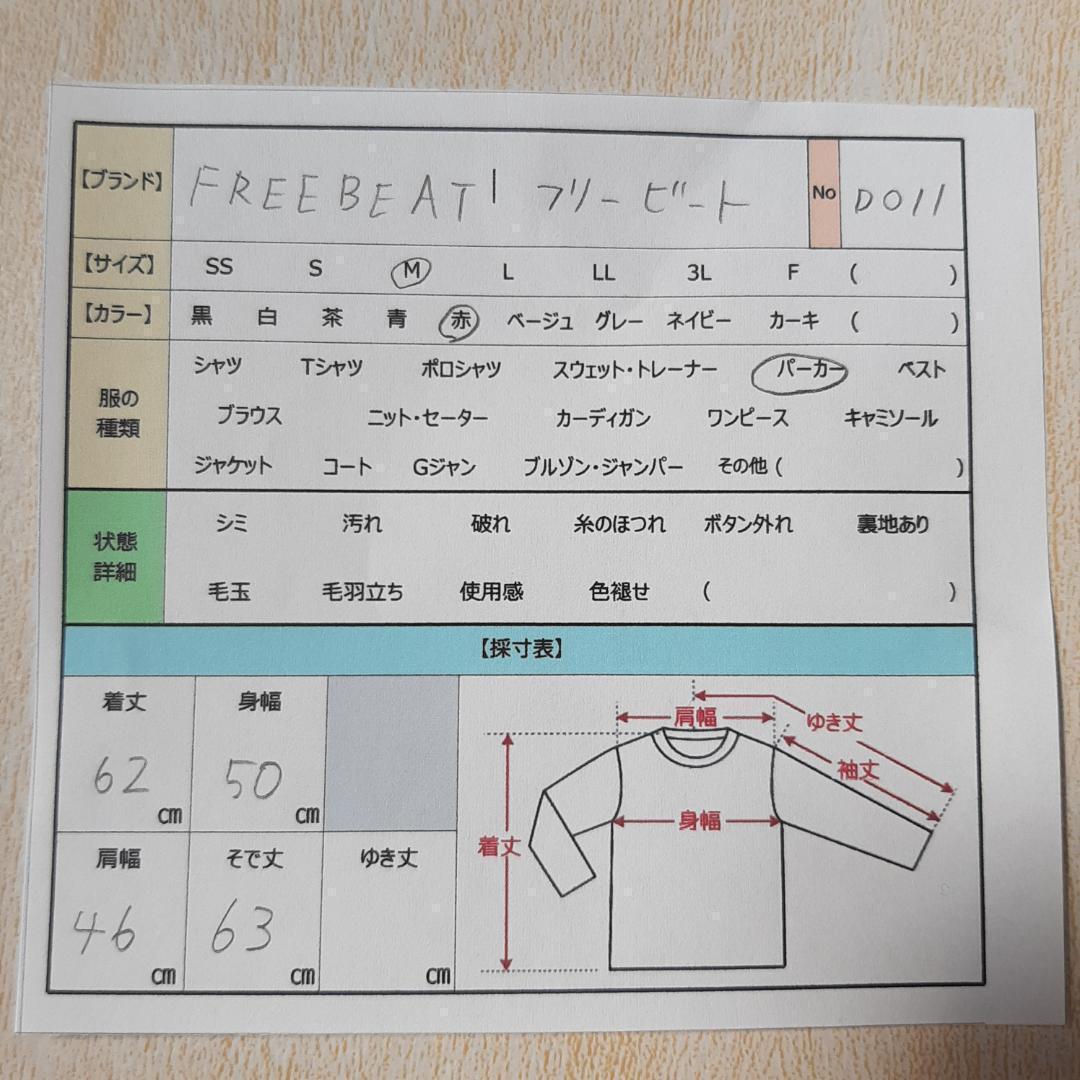 【ブランド】 FREEBEAT| フリービート No D011
【サイズ】 SS S M L LL 3L F ( )
【カラー】 黒 白 茶 青 赤 ベージュ グレー ネイビー カーキ ( )
服の種類 シャツ Tシャツ ポロシャツ スウェット・トレーナー パーカー ベスト
ブラウス ニット・セーター カーディガン ワンピース キャミソール
ジャケット コート Gジャン ブルゾン・ジャンパー その他 ( )
状態詳細 シミ 汚れ 破れ 糸のほつれ ボタン外れ 裏地あり
毛玉 毛羽立ち 使用感 色褪せ ( )
【採寸表】
着丈 身幅
62 cm 50 cm
肩幅 そで丈 ゆき丈
46 cm 63 cm cm
肩幅 ゆき丈
袖丈
着丈 身幅